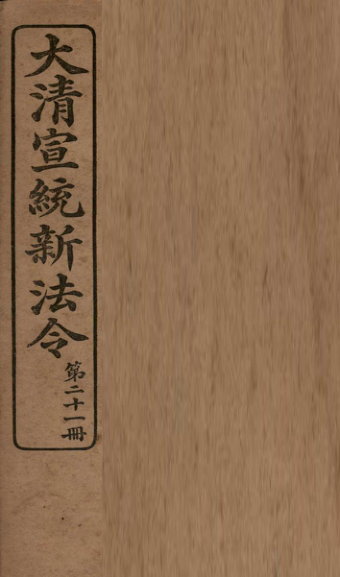 大清宣統新法令
第二十一冊